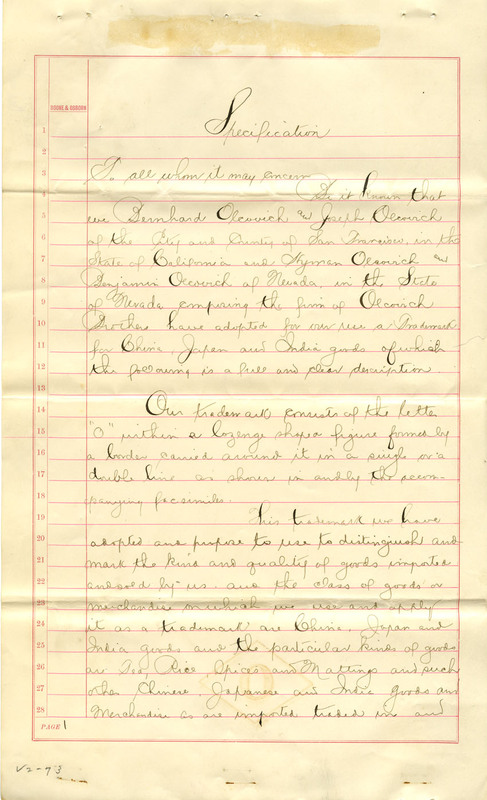 HOOKE & OSBORN
Specification
1
2
3 To all whom it may concern
4 Be it known that
5 we Bernhard Olcovich and Joseph Olcovich
6 of the City and County of San Francisco, in the
7 State of California and Hyman Olcovich and
8 Benjamin Olcovich of Nevada, in the State
9 of Nevada composing the firm of Olcovich
10 Brothers have adopted for our use a Trademark
11 for China Japan and India goods of which
12 the following is a full and clear description
13
14 Our trademark consists of the letter
15 "O" within a lozenge shaped figure formed by
16 a border carried around it in a single or a
17 double line as shown in and by the accom-
18 panying facsimiles.
19 This trademark we have
20 adopted and propose to use to distinguish and
21 mark the kind and quality of goods imported
22 and sold by us. and the class of goods or
23 merchandise on which we use and apply
24 it as a trademark are China, Japan and
25 India goods and the particular kinds of goods
26 are Tea Rice Spices and Mattings and such
27 other Chinese, Japanese and India goods and
28 Merchandise as are imported traded in and
PAGE 1
V2-73